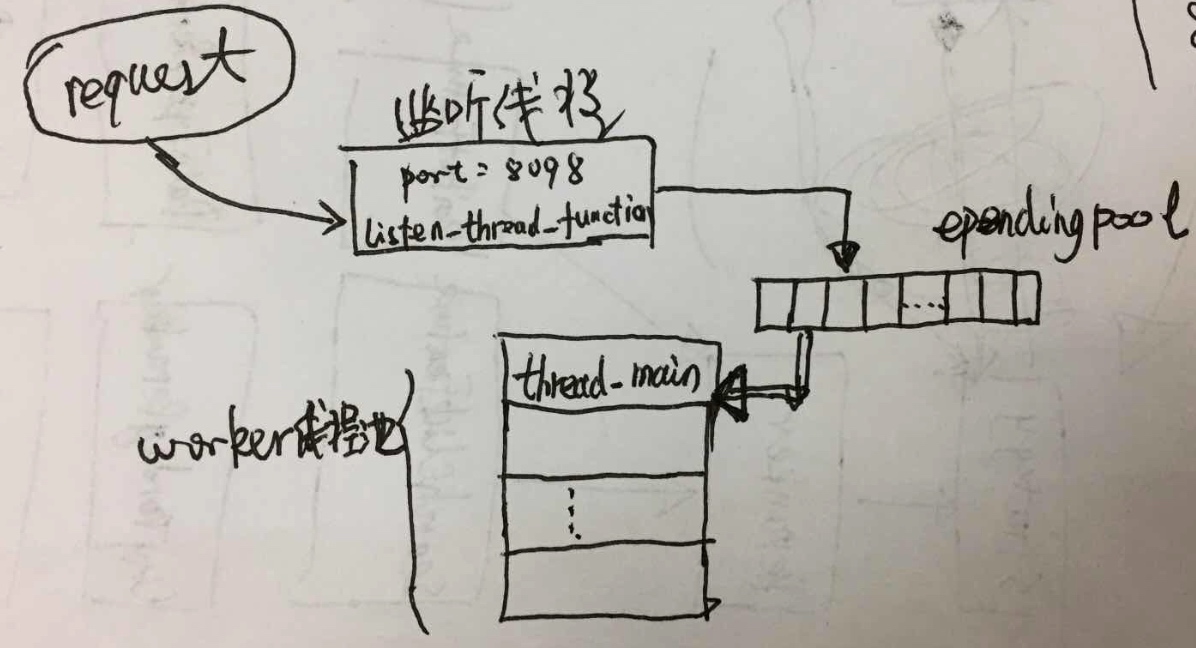 request
监听线程
port = 8098
listen_thread_function
ependingpool
thread_main
worker线程池